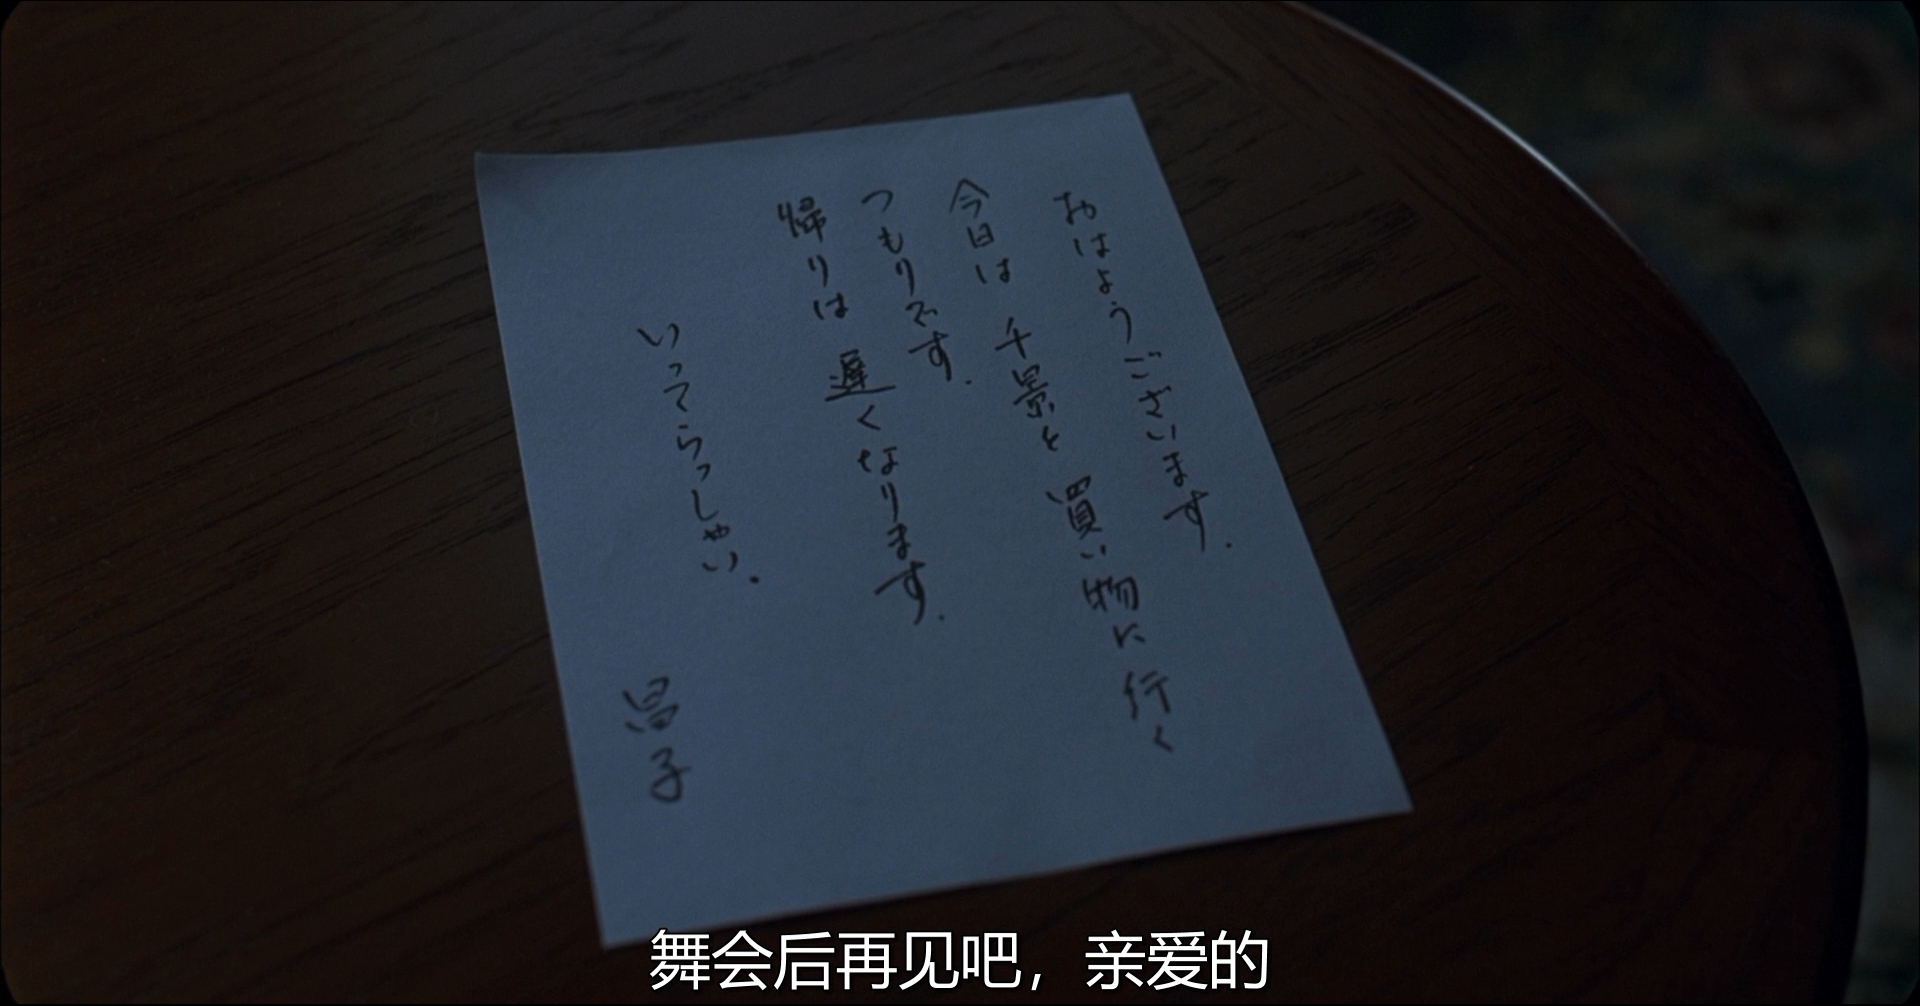 おはようございます.
今日は 千景と 買い物に 行く
つもりです.
帰りは 遅くなります.
いってらっしゃい.
昌子
舞会后再见吧，亲爱的